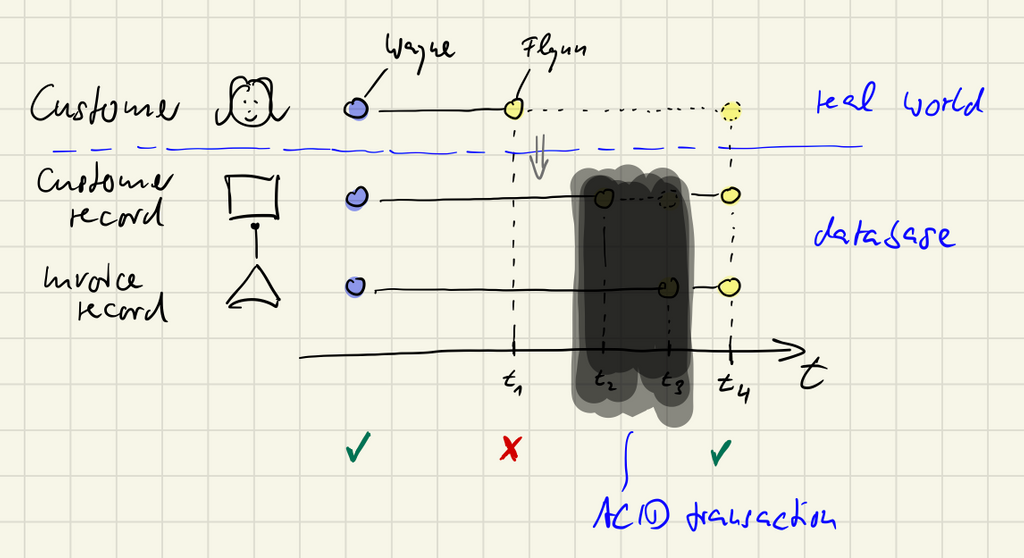 Wayne
Flynn
Custome
real world
Customer
record
database
Invoice
record
t1
t2
t3
t4
t
✓
✗
✓
ACID transaction